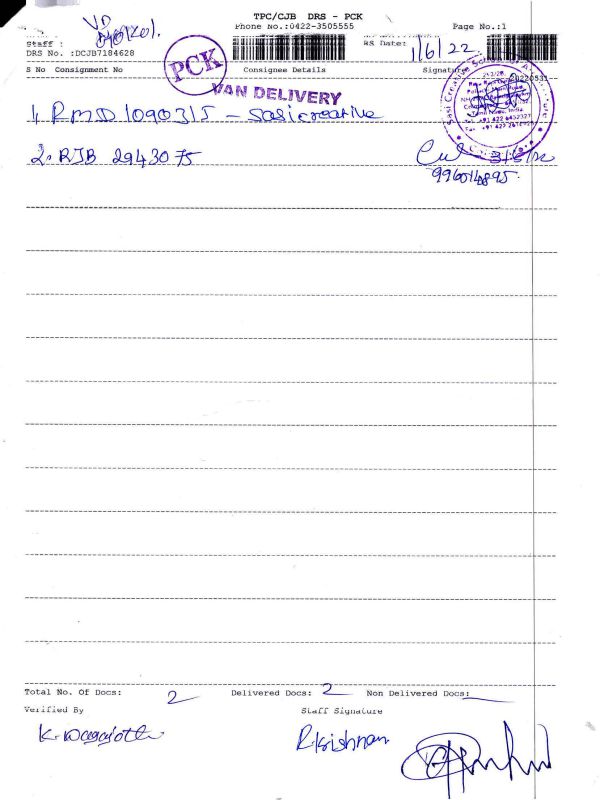 TPC/CJB DRS - PCK
VD
Phone No.:0422-3505555
Page No.:1
Staff :
RS Date:
1/6/22
DRS No. :DCJB7184628
PCK
S No Consignment No
Consignee Details
Signatu
20220531
VAN DELIVERY
1, RMD 1090315 - Sasi creative
2. RJB 2943075
Total No. Of Docs: 2
Delivered Docs: 2
Non Delivered Docs:
Verified By
Staff Signature
R. Krishnan